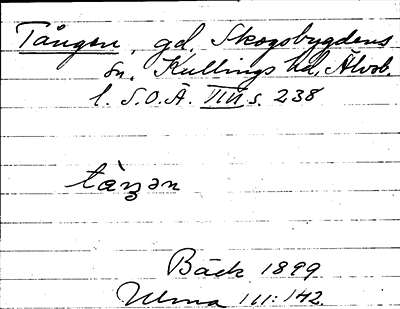 Tången, gd. Skogsbygdens
sn. Kullings hd, Älvsb.
l. S.O.Ä. VIII s. 238
tàŋən
Bäck 1899
Ulma 111:142.